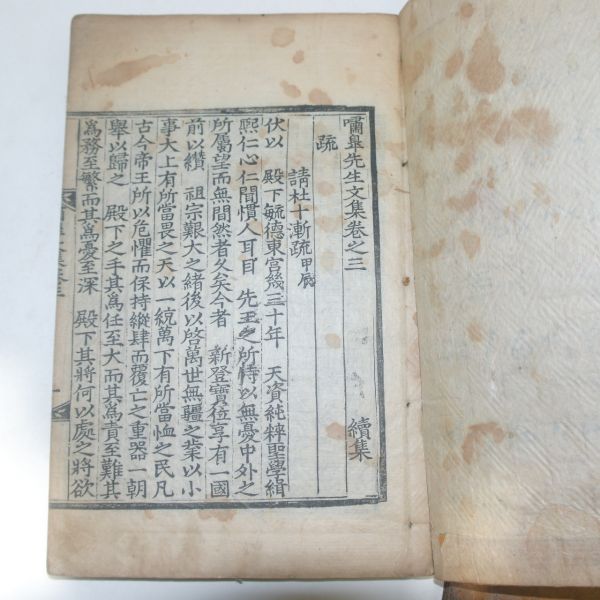 嘯皐先生文集卷之三 續集
疏
請杜十漸疏 甲辰
伏以 殿下毓德東宮幾三十年 天資純粹聖學緝
熙仁心仁聞慣人耳目 先王之所恃以無憂中外之
所屬望而無間然者久矣今者 新登寶位享有一國
前以纘 祖宗艱大之緖後以啓萬世無疆之業以小
事大上有所當畏之天以一統萬下有所當恤之民凡
古今帝王所以危懼而保持縱肆而覆亡之重器一朝
舉以歸之 殿下之手其爲任至大而其爲責至難其
爲務至繁而其爲憂至深 殿下其將何以處之將欲